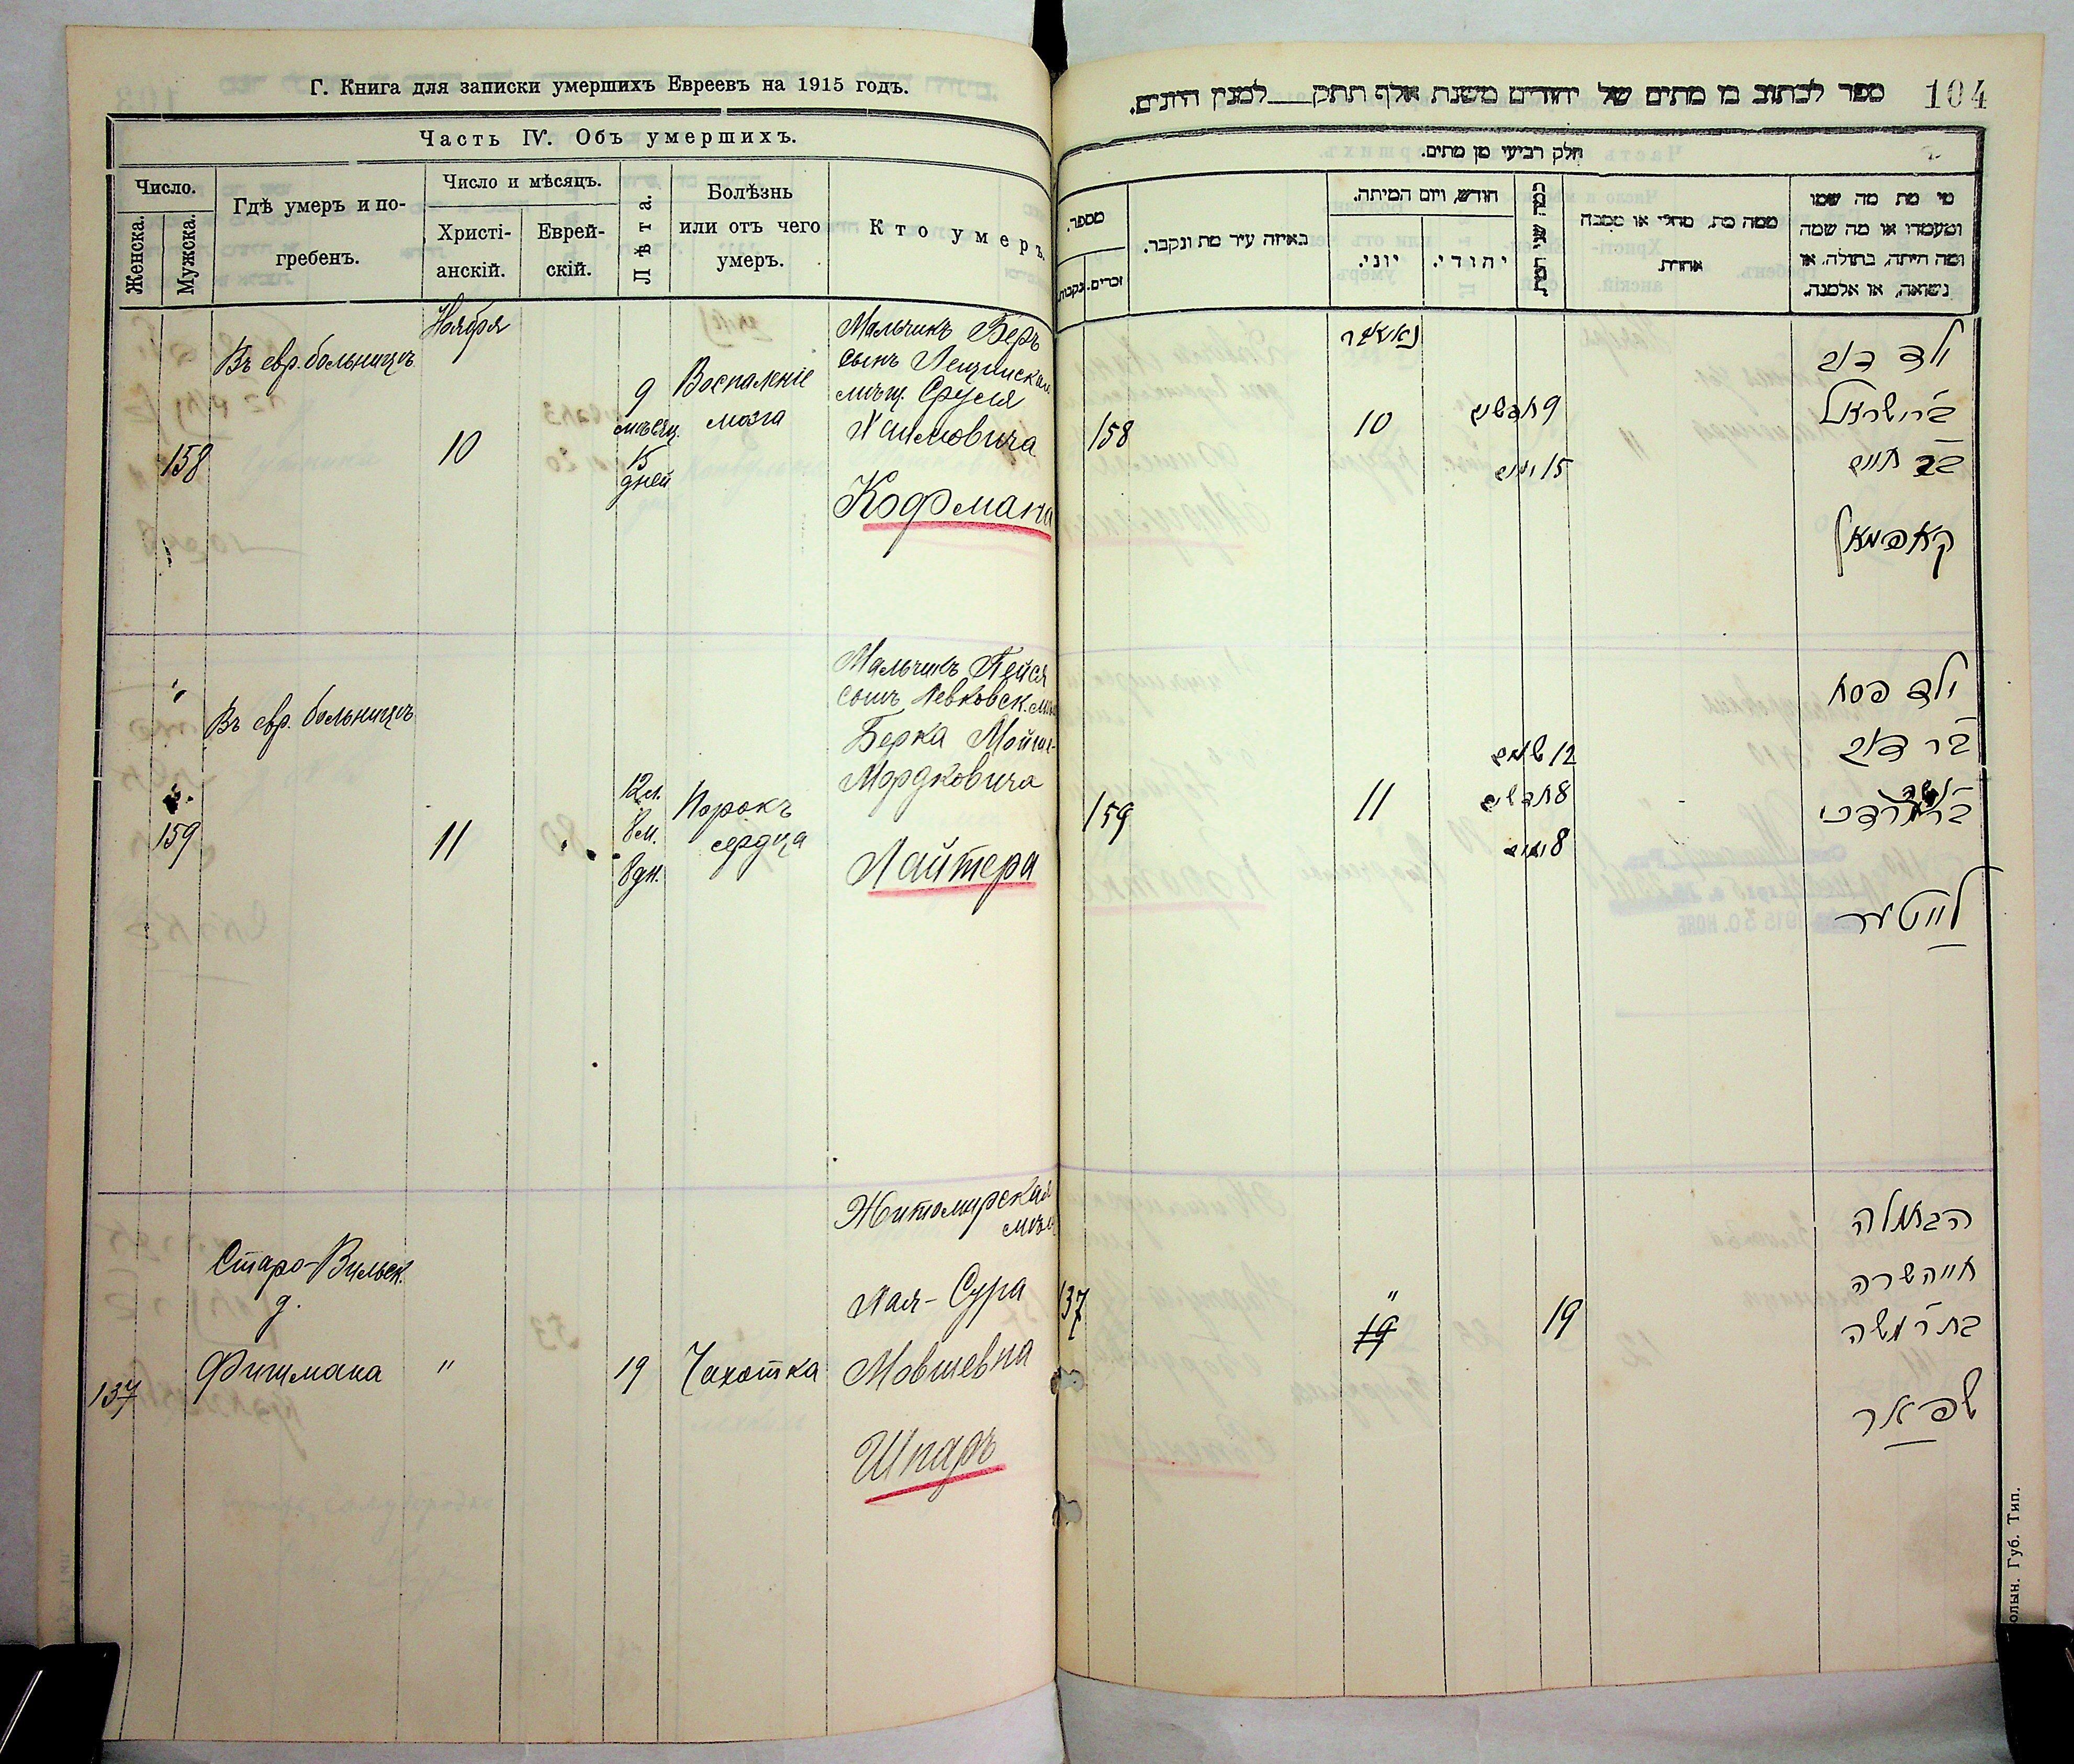 Г. Книга для записки умершихъ Евреевъ на 1915 годъ.
Часть IV. Объ умершихъ.
Число.
Женска.
Мужска.
Гдѣ умеръ и по-
гребенъ.
Число и мѣсяцъ.
Христі-
анскій.
Еврей-
скій.
Лѣта.
Болѣзнь
или отъ чего
умеръ.
Кто умеръ.
158
Въ евр. больницѣ
Ноября
10
9
мѣсяц.
15
дней
Воспаленіе
мозга
Мальчикъ Беръ
сынъ
мѣщ. Сруля
Хаимовича
Кофмана
159
Въ евр. больницѣ
11
12 л.
8 м.
8 дн.
Порокъ
сердца
Мальчикъ Пейся
сынъ Левковск.
Берка
Мордковича
Лайтера
137
Старо-Вильск.
д.
Фишмана
"
19
Чахотка
Житомирская
Хая-Сура
Мовшевна
Шпаръ
104
ספר לכתוב בו מתים של יהודים משנת אלף תתק למנין היונים.
חלק רביעי מן מתים.
מספר.
נקבות.
זכרים.
באיזה עיר מת ונקבר.
חודש, ויום המיתה.
יוני.
יהודי.
ממה מת, מחלי או מסבה
אחרת.
מי מת מה שמו
ומעמדו או מה שמה
ומה היתה, בתולה, או
נשואה, או אלמנה.
158
נאיאבר
10
9 חדשים
15 ימים
ילד דוב
בר ישראל
בר חיים
קאפמאן
159
11
12 שנים
8 חדשים
8 ימים
ילד פסח
בר דוב
לייטער
137
"
19
19
הבתולה
חיה שרה
בת ר משה
שפאר
олын. Губ. Тип.